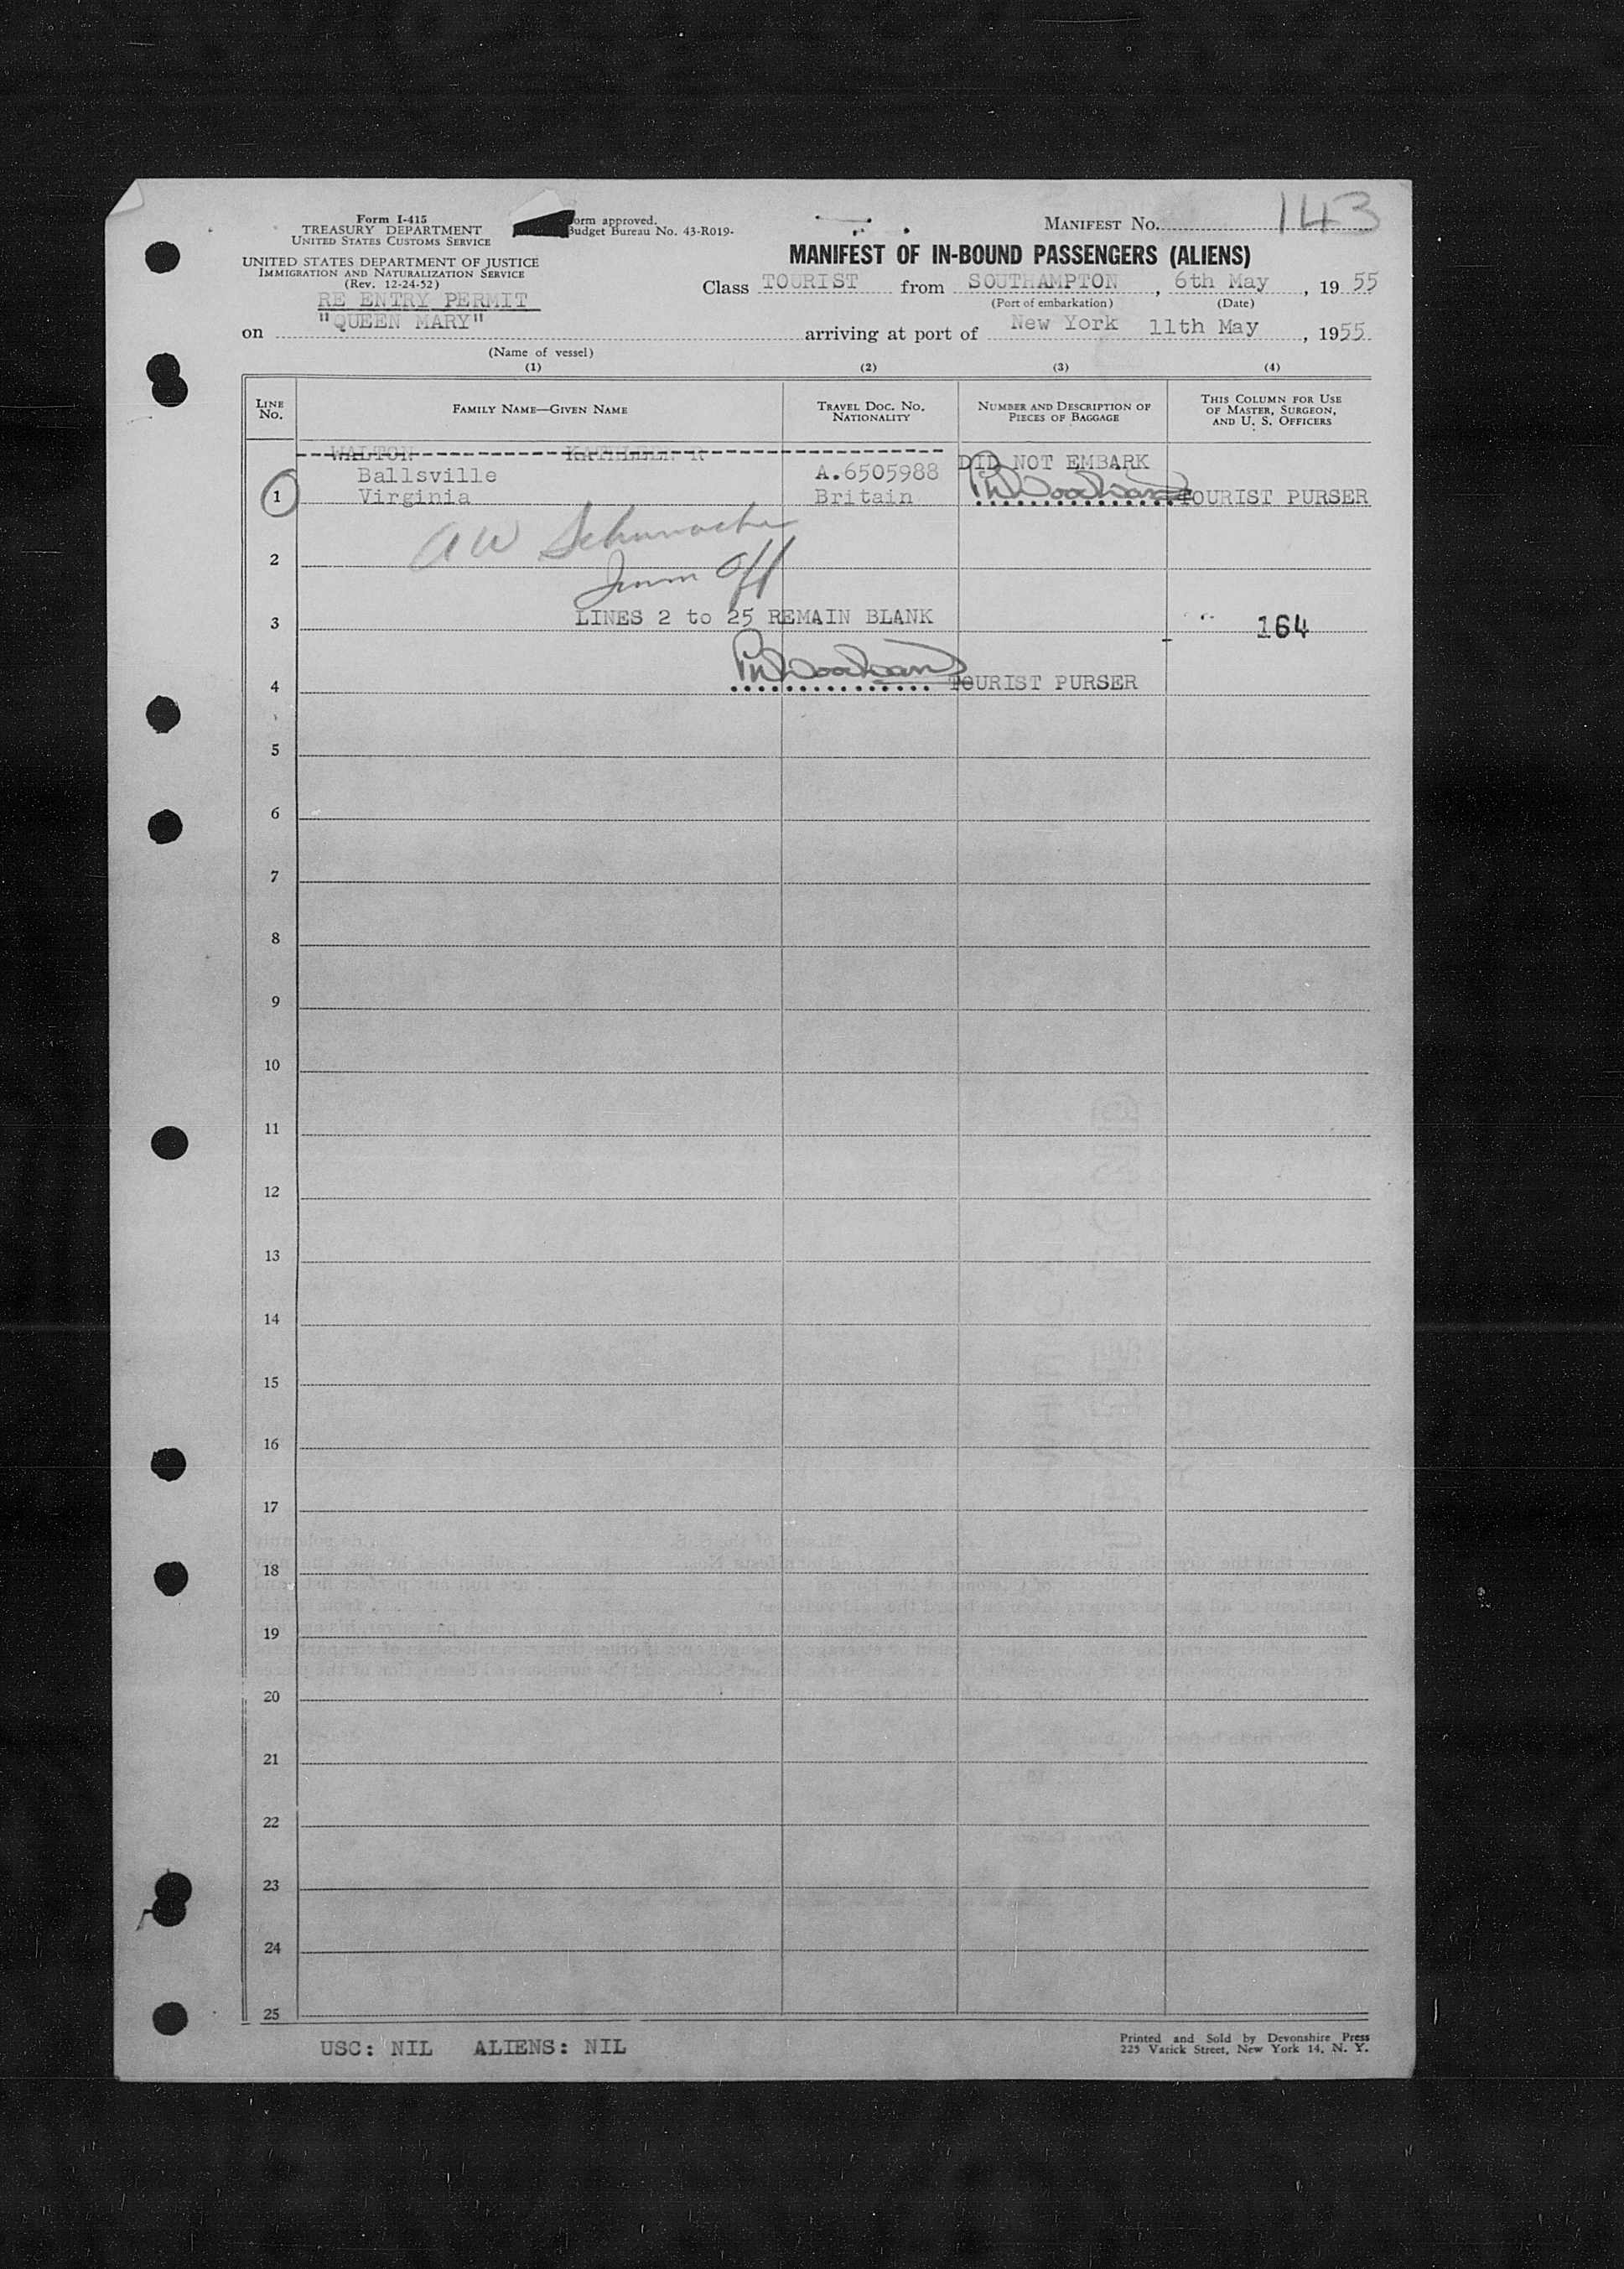 Form I-415
TREASURY DEPARTMENT
UNITED STATES CUSTOMS SERVICE
orm approved.
Budget Bureau No. 43-R019-
MANIFEST No. 143
UNITED STATES DEPARTMENT OF JUSTICE
IMMIGRATION AND NATURALIZATION SERVICE
(Rev. 12-24-52)
MANIFEST OF IN-BOUND PASSENGERS (ALIENS)
RE ENTRY PERMIT
Class TOURIST from SOUTHAMPTON, 6th May, 19 55
(Port of embarkation) (Date)
on "QUEEN MARY" arriving at port of New York 11th May, 1955
(Name of vessel)
(1) (2) (3) (4)
LINE No. FAMILY NAME—GIVEN NAME TRAVEL DOC. NO. NATIONALITY NUMBER AND DESCRIPTION OF PIECES OF BAGGAGE THIS COLUMN FOR USE OF MASTER, SURGEON, AND U. S. OFFICERS
WALTON KATHLEEN R
Ballsville A.6505988 DID NOT EMBARK
1 Virginia Britain TOURIST PURSER
A W Schumacher
2
Imm Off
3 LINES 2 to 25 REMAIN BLANK 164
4 TOURIST PURSER
5
6
7
8
9
10
11
12
13
14
15
16
17
18
19
20
21
22
23
24
25
USC: NIL ALIENS: NIL
Printed and Sold by Devonshire Press
225 Varick Street, New York 14, N. Y.